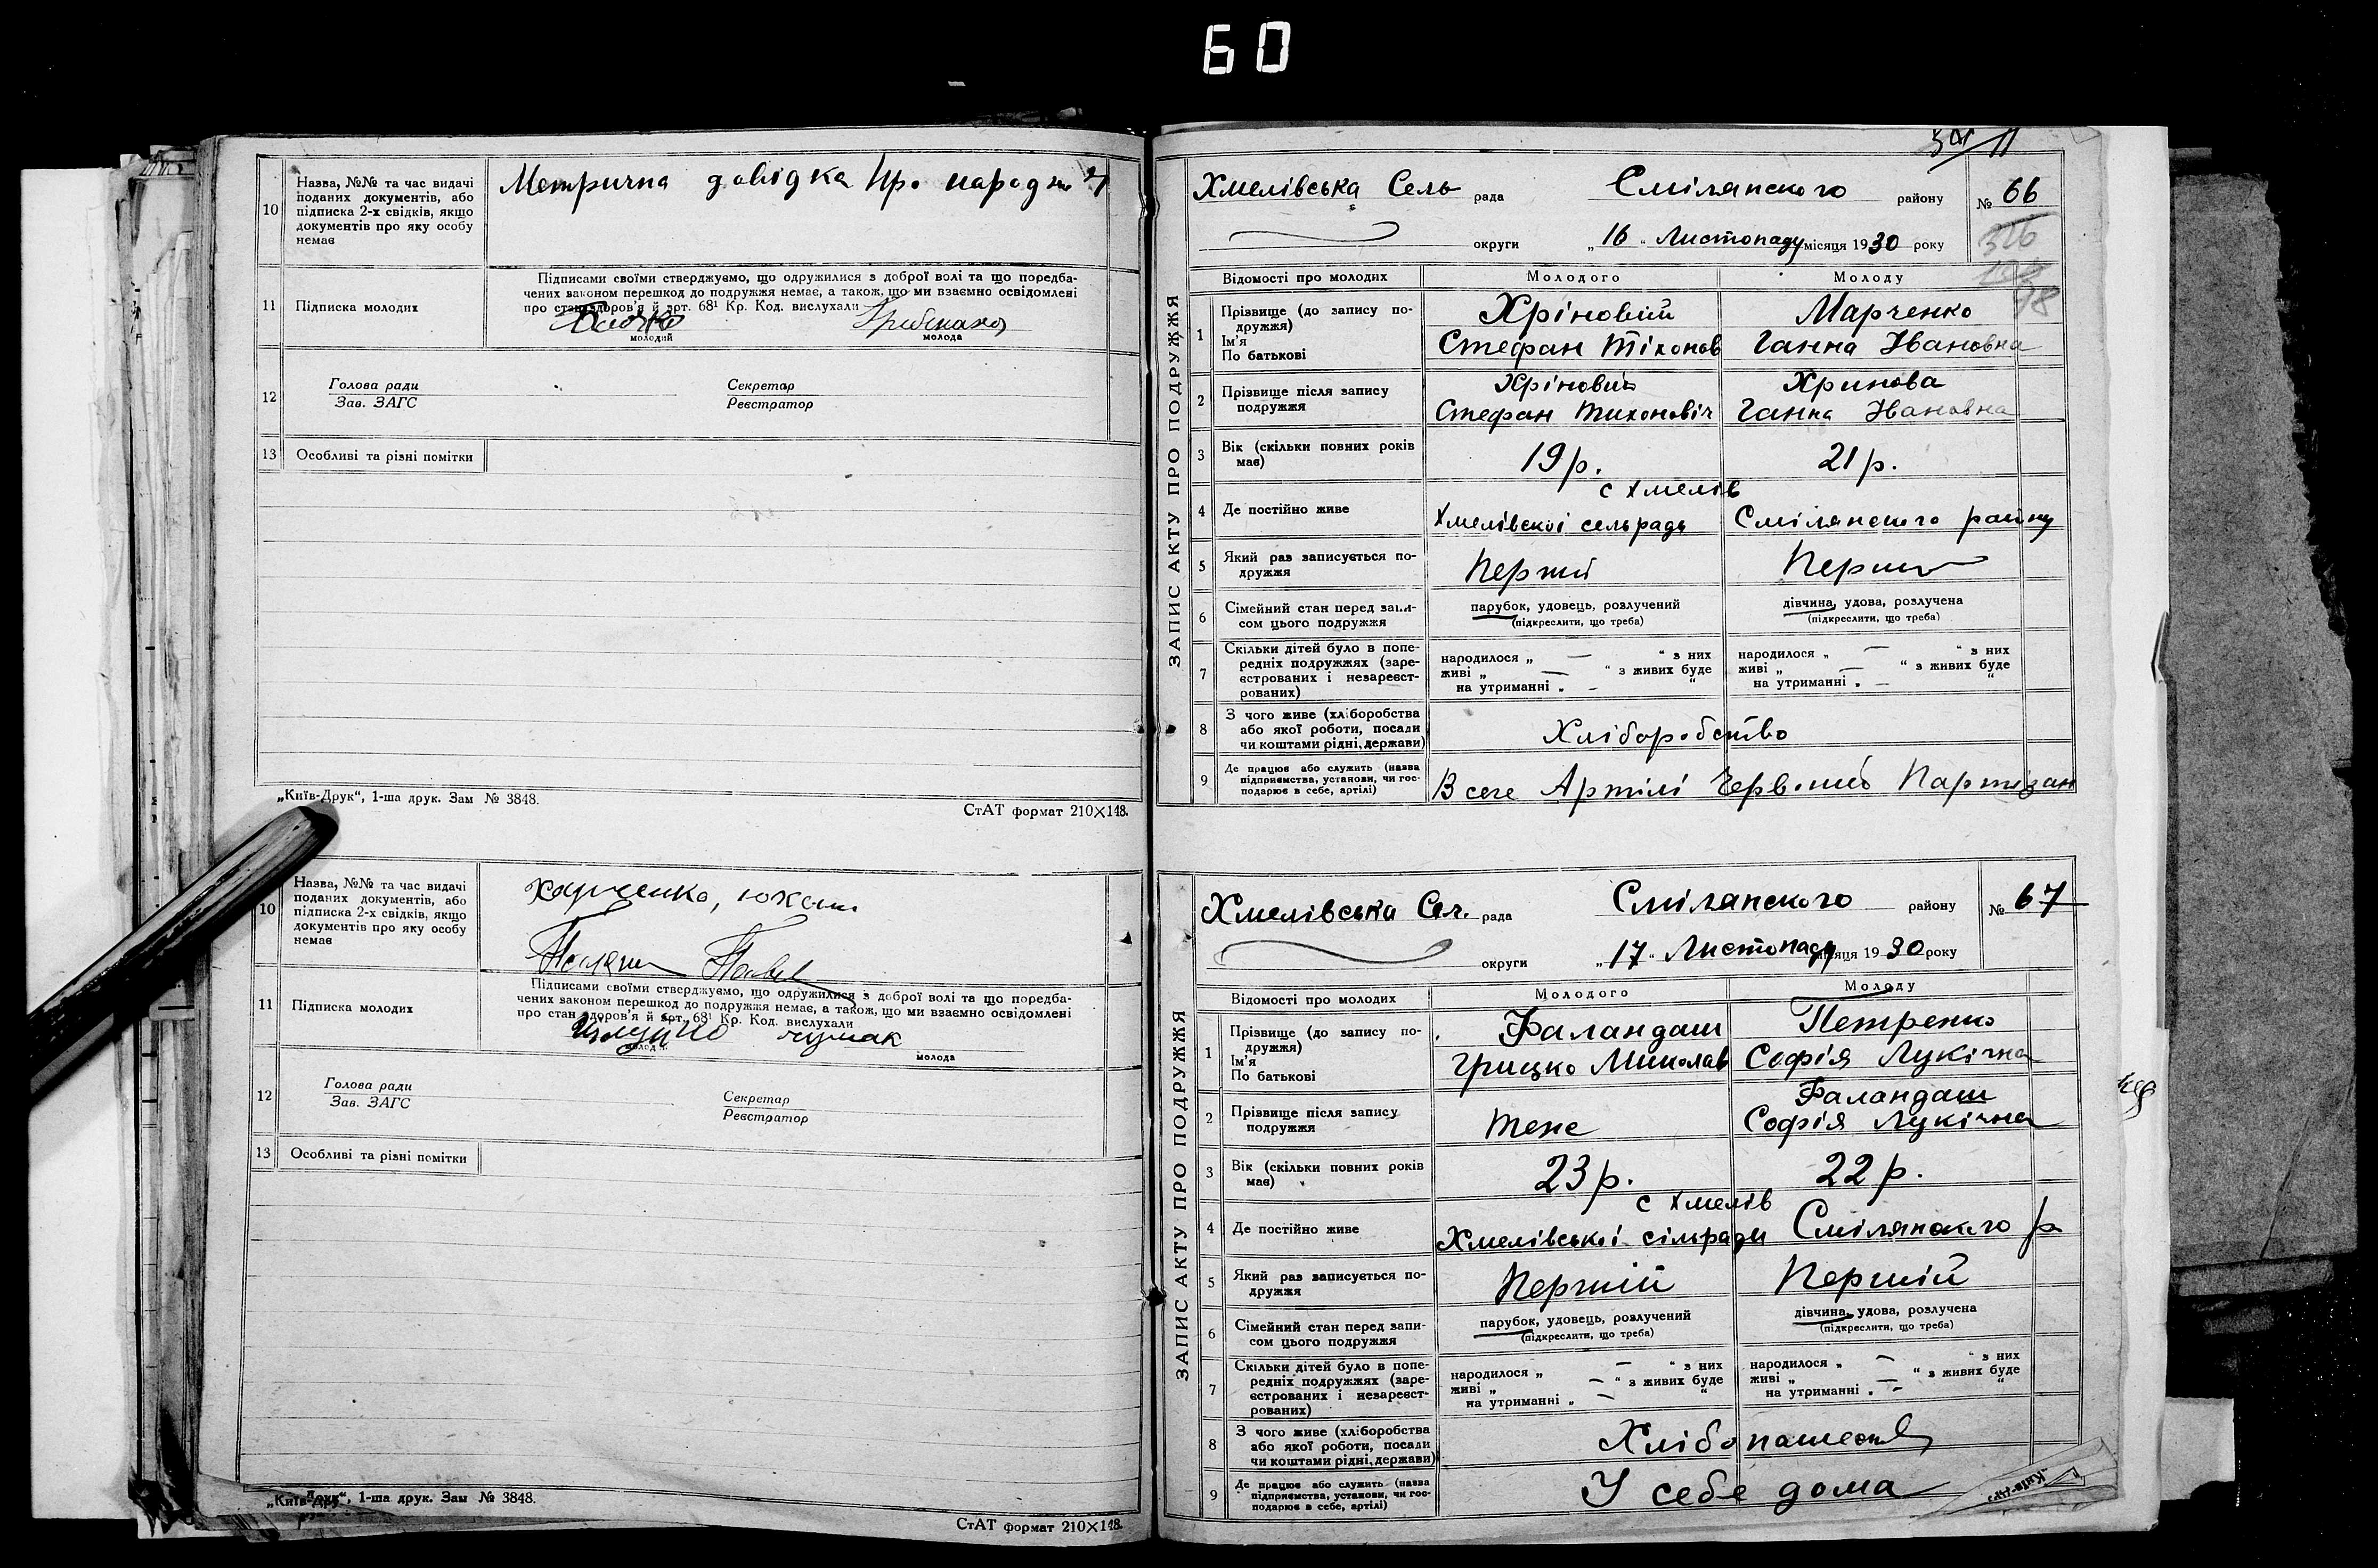 60
10
Назва, №№ та час видачі
поданих документів, або
підписка 2-х свідків, якщо
документів про яку особу
немає
Метрична довідка про народж
11
Підписка молодих
Підписами своїми стверджуємо, що одружилися з доброї волі та що поредба-
чених законом перешкод до подружжя немає, а також, що ми взаємно освідомлені
про стан здоров'я й арт. 68¹ Кр. Код. вислухали
молодий
молода
12
Голова ради
Зав. ЗАГС
Секретар
Реєстратор
13
Особливі та різні помітки
„Київ-Друк“, 1-ша друк. Зам № 3848.
СтАТ формат 210×148.
10
Назва, №№ та час видачі
поданих документів, або
підписка 2-х свідків, якщо
документів про яку особу
немає
Харченко,
11
Підписка молодих
Підписами своїми стверджуємо, що одружилися з доброї волі та що поредба-
чених законом перешкод до подружжя немає, а також, що ми взаємно освідомлені
про стан здоров'я й арт. 68¹ Кр. Код. вислухали
чумак
молода
12
Голова ради
Зав. ЗАГС
Секретар
Реєстратор
13
Особливі та різні помітки
„Київ-Друк“, 1-ша друк. Зам № 3848.
СтАТ формат 210×148.
11
ЗАПИС АКТУ ПРО ПОДРУЖЖЯ
Хмелівська Сель рада Смілянского району № 66
округи „16“ Листопаду місяця 1930 року
Відомості про молодих Молодого Молоду
1
Прізвище (до запису по-
дружжя)
Ім'я
По батькові
Хріновий
Стефан Тіхонов
Марченко
Ганна Івановна
2
Прізвище після запису
подружжя
Хріновий
Стефан Тихоновіч
Хринова
Ганна Івановна
3
Вік (скільки повних років
має)
19 р.
21 р.
4
Де постійно живе
с Хмелів
Хмелівскої сельради Смілянского району
5
Який раз записується по-
дружжя
Перший
6
Сімейний стан перед запи-
сом цього подружжя
парубок, удовець, розлучений
(підкреслити, що треба)
дівчина, удова, розлучена
(підкреслити, що треба)
7
Скільки дітей було в попе-
редніх подружжях (заре-
єстрованих і незареєст-
рованих)
народилося „ — “ з них
живі „ — “ з живих буде
на утриманні „ — “
народилося „ — “ з них
живі „ — “ з живих буде
на утриманні „ — “
8
З чого живе (хліборобства
або якої роботи, посади
чи коштами рідні, держави)
Хліборобство
9
Де працює або служить (назва
підприємства, установи, чи гос-
подарює в себе, артілі)
В селе Артілі Червоний Партизан
ЗАПИС АКТУ ПРО ПОДРУЖЖЯ
Хмелівська Сел. рада Смілянского району № 67
округи „17“ Листопаду місяця 1930 року
Відомості про молодих Молодого Молоду
1
Прізвище (до запису по-
дружжя)
Ім'я
По батькові
Фаландаш
Грицко Миколав
Петренко
Софія Лукічна
2
Прізвище після запису
подружжя
теже
Фаландаш
Софія Лукічна
3
Вік (скільки повних років
має)
23 р.
22 р.
4
Де постійно живе
с Хмелів
Хмелівської сільради Смілянского р
5
Який раз записується по-
дружжя
Перший
Першій
6
Сімейний стан перед запи-
сом цього подружжя
парубок, удовець, розлучений
(підкреслити, що треба)
дівчина, удова, розлучена
(підкреслити, що треба)
7
Скільки дітей було в попе-
редніх подружжях (заре-
єстрованих і незареєст-
рованих)
народилося „ — “ з них
живі „ — “ з живих буде
на утриманні „ — “
народилося „ — “ з них
живі „ — “ з живих буде
на утриманні „ — “
8
З чого живе (хліборобства
або якої роботи, посади
чи коштами рідні, держави)
9
Де працює або служить (назва
підприємства, установи, чи гос-
подарює в себе, артілі)
У себе дома